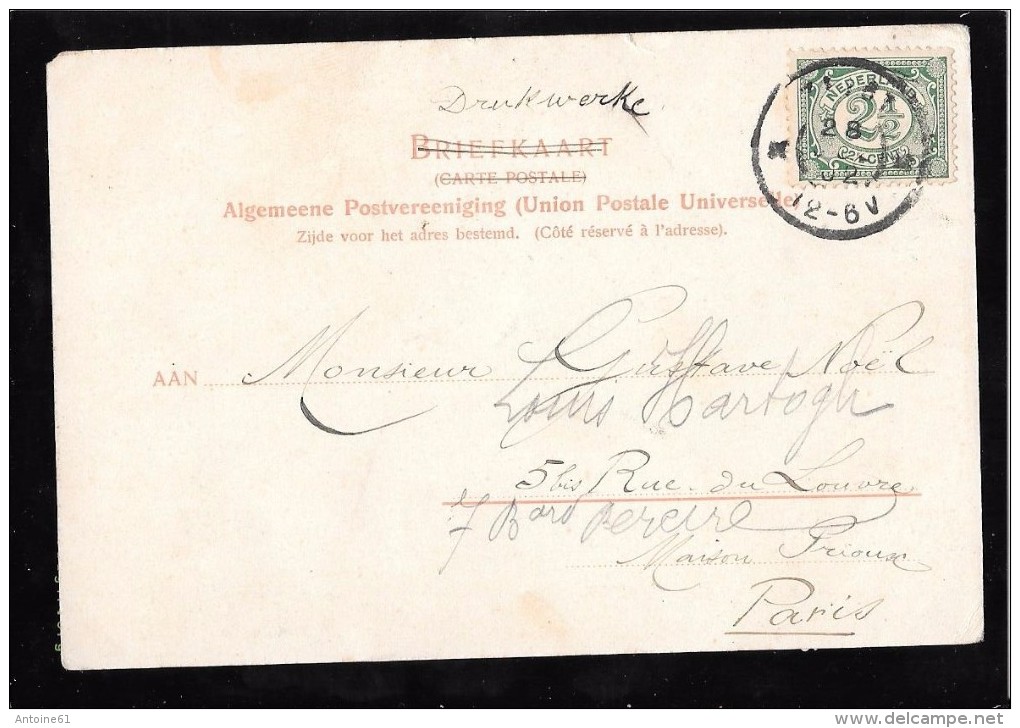 Drukwerke
NEDERLAND
2½
2½ CENT
28
12-6V
BRIEFKAART
(CARTE POSTALE)
Algemeene Postvereeniging (Union Postale Universelle
Zijde voor het adres bestemd. (Côté réservé à l'adresse).
AAN Monsieur Gustave Noël
Louis Hartogh
5 bis Rue du Louvre
7 Bard Pereire
Maison Prioux
Paris
Antoine61
delcampe.net